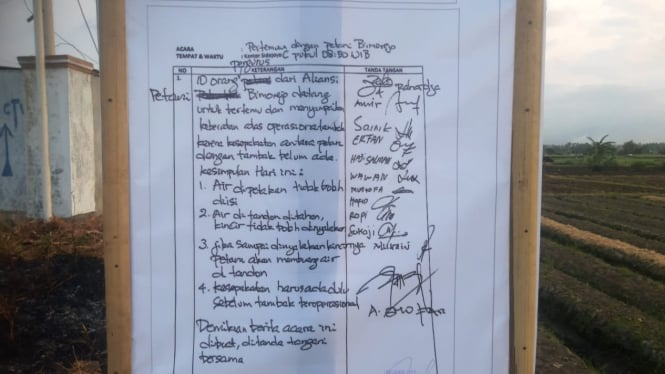 ACARA : Pertemuan dengan petani Bimorejo
TEMPAT & WAKTU : Kantor pukul 08:30 WIB
NO KETERANGAN TANDA TANGAN
1 10 orang pengurus dari Aliansi
Petani Bimorejo datang
untuk bertemu dan menyampaikan
keberatan atas operasional tambak
karena kesepakatan antara petani
dengan tambak belum ada.
kesimpulan Hari ini :
1. Air dipetakan tidak boleh
diisi
2. Air di tandon ditahan,
kincir tidak boleh dinyalakan
3. Jika sampai dinyalakan kincirnya
Petani akan membuang air
di tandon
4. Kesepakatan harus ada dulu
sebelum tambak teroperasional
Demikian berita acara ini
dibuat, ditanda tangani
bersama
Rahardya
Amir
Sainik
ERFAN
WAWAN
MUSTOFA
ROPI
Sukoji